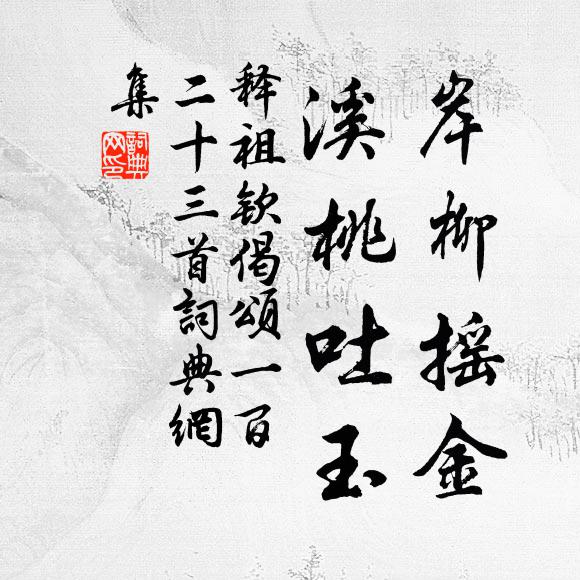 岸柳摇金
溪桃吐玉
释祖钦偈颂一百
二十三首詞典網
集
詞典
网印